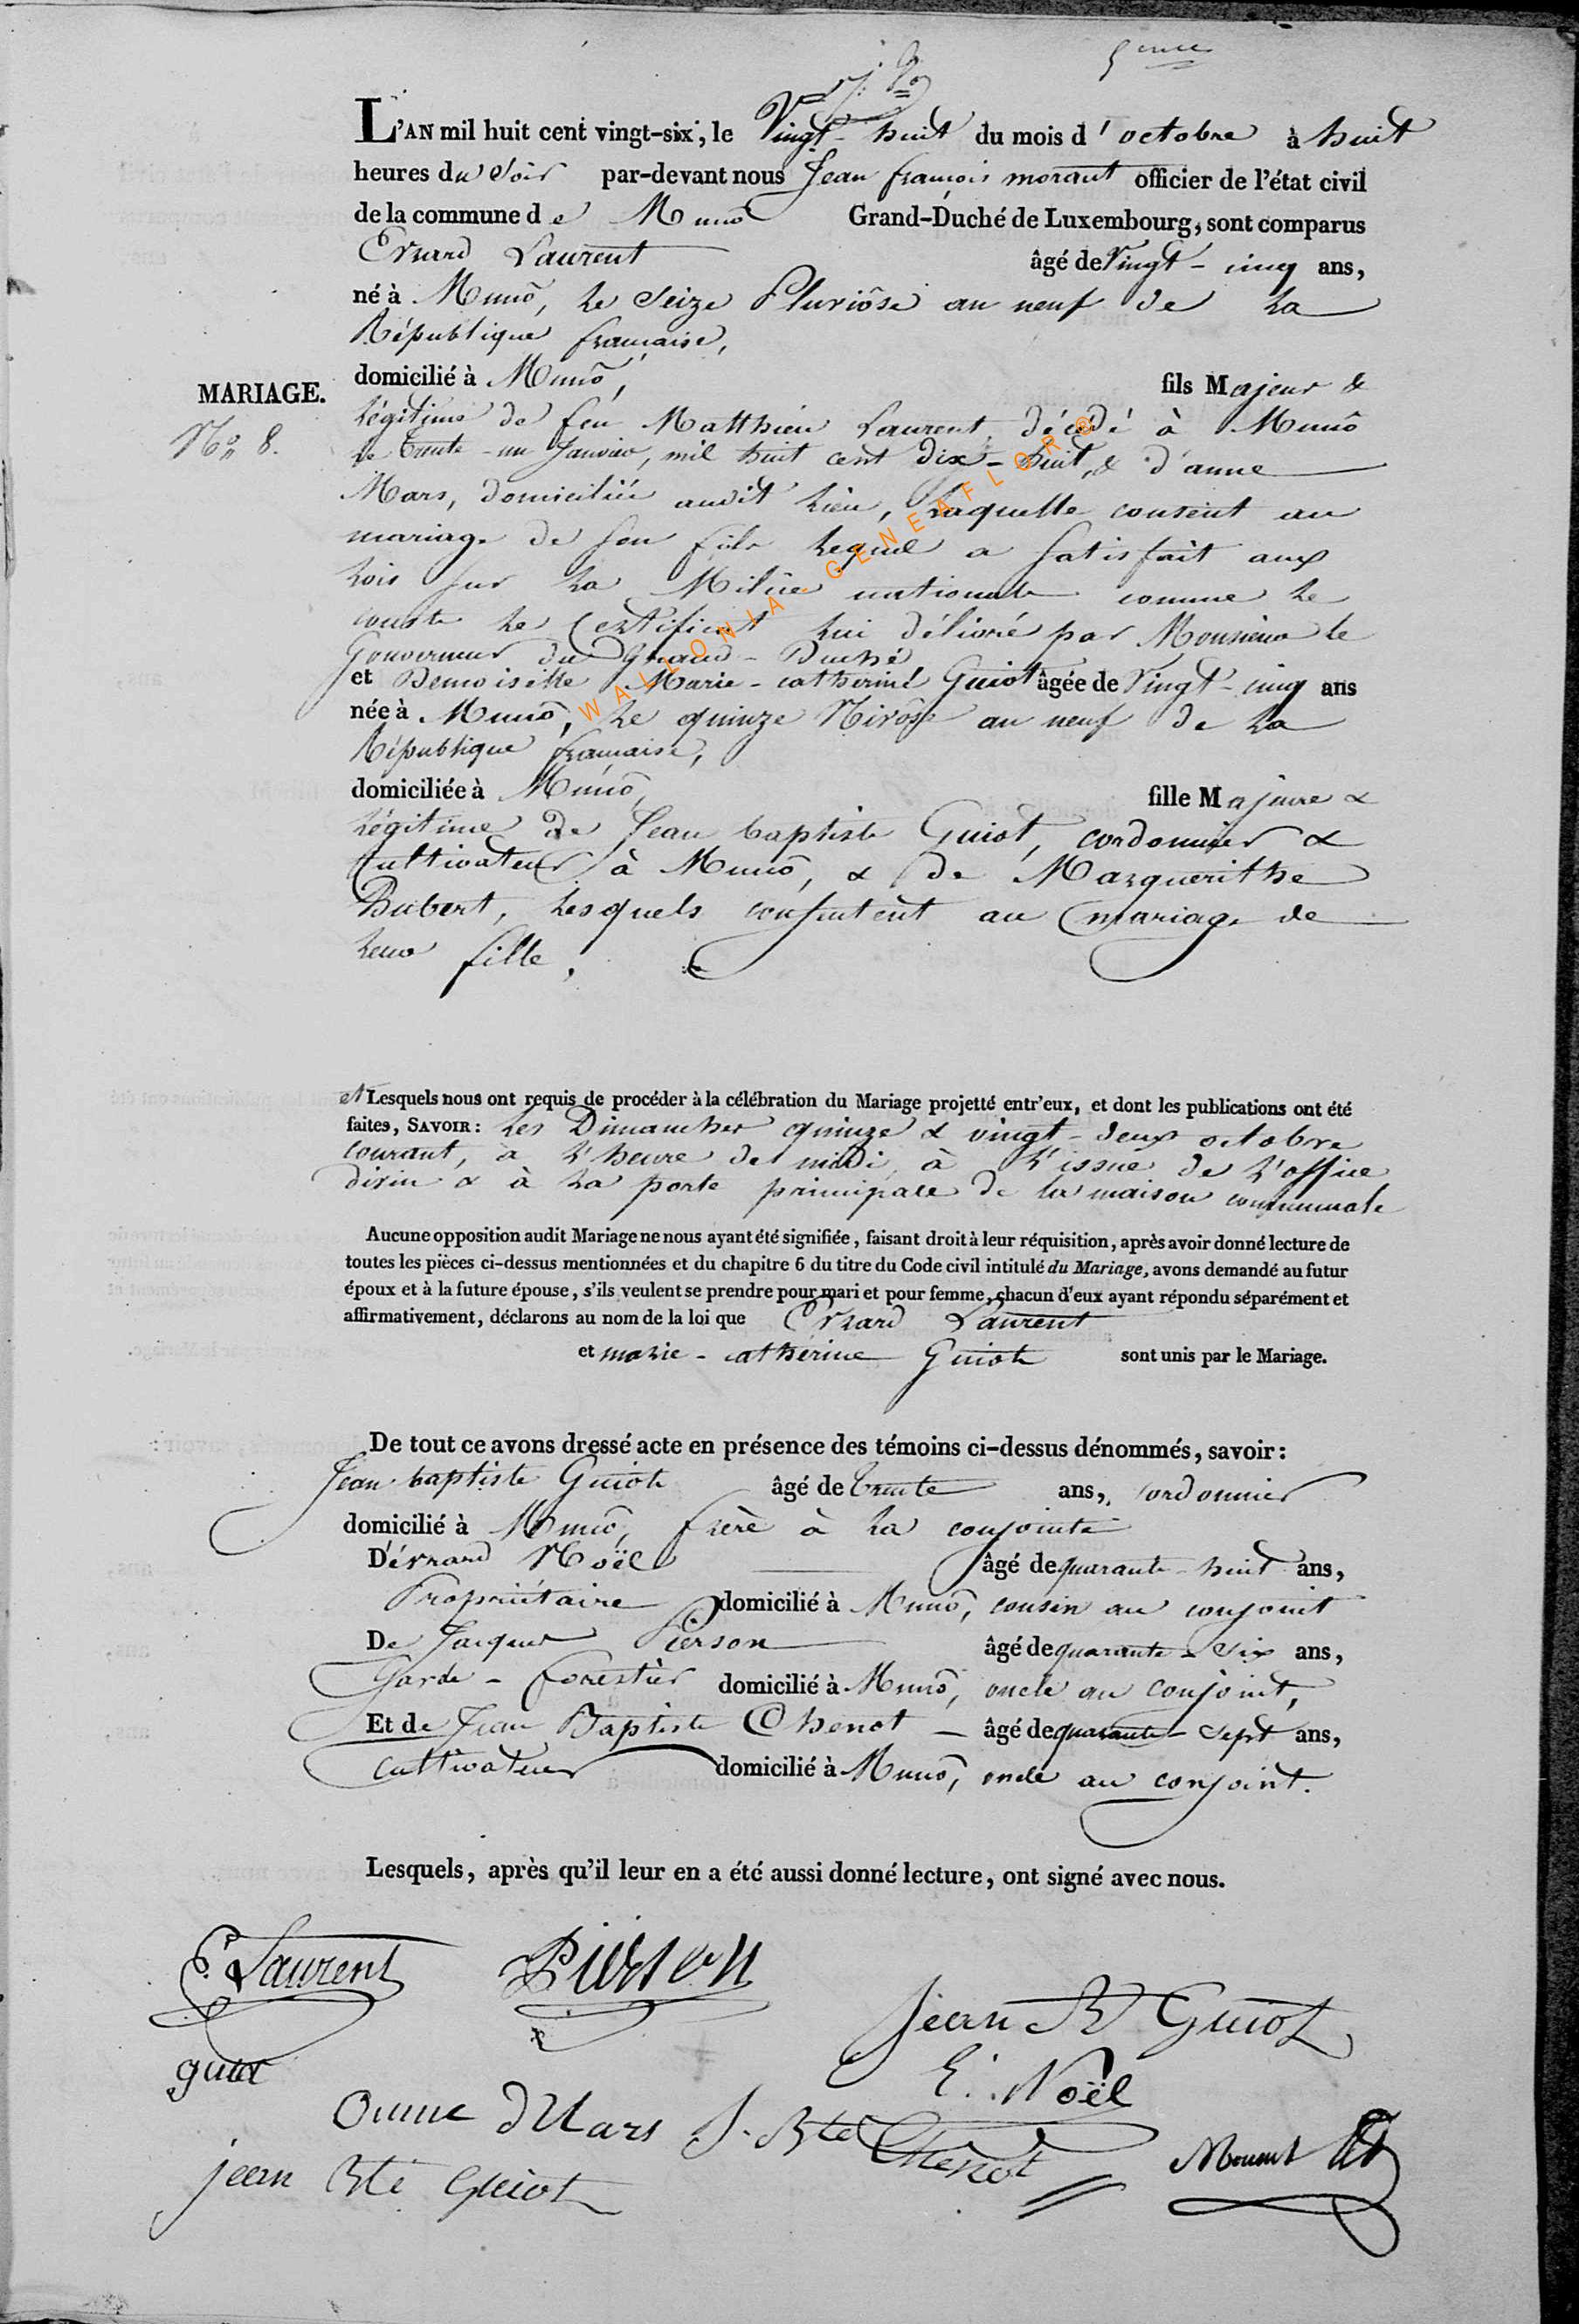 5eme
L'AN mil huit cent vingt-six, le Vingt-huit du mois d'octobre à huit
heures du Soir par-devant nous Jean françois morant officier de l'état civil
de la commune de Munô Grand-Duché de Luxembourg, sont comparus
Evrard Laurent âgé de Vingt-cinq ans,
né à Munô, le Seize Pluviôse an neuf de la
République française,
domicilié à Munô, fils Majeur &
MARIAGE.
légitime de feu Matthieu Laurent, décédé à Munô
No 8.
le trente-un Janvier, mil huit cent dix-huit, & d'anne
Mars, domiciliée audit lieu, laquelle consent au
mariage de son fils lequel a satisfait aux
lois sur la Milice nationale comme le
conste le Certificat lui délivré par Monsieur le
Gouverneur du Grand-Duché
et Demoiselle Marie-catherine Guiot âgée de Vingt-cinq ans
née à Munô, le quinze Nivôse an neuf de la
République française,
domiciliée à Munô, fille Majeure &
légitime de Jean baptiste Guiot, cordonnier &
Cultivateur à Munô, & de Marguerithe
Hubert, lesquels consentent au mariage de
leur fille.
et Lesquels nous ont requis de procéder à la célébration du Mariage projetté entr'eux, et dont les publications ont été
faites, SAVOIR: les Dimanches quinze & vingt-deux octobre
courant, à l'heure de midi, à l'issue de l'office
divin & à la porte principale de la maison communale
Aucune opposition audit Mariage ne nous ayant été signifiée, faisant droit à leur réquisition, après avoir donné lecture de
toutes les pièces ci-dessus mentionnées et du chapitre 6 du titre du Code civil intitulé du Mariage, avons demandé au futur
époux et à la future épouse, s'ils veulent se prendre pour mari et pour femme, chacun d'eux ayant répondu séparément et
affirmativement, déclarons au nom de la loi que Evrard Laurent
et marie-catherine Guiot sont unis par le Mariage.
De tout ce avons dressé acte en présence des témoins ci-dessus dénommés, savoir:
Jean baptiste Guiot âgé de trente ans, cordonnier
domicilié à Munô, frère à la conjointe
D'évrard Noël âgé de quarante-huit ans,
Propriétaire domicilié à Munô, cousin au conjoint
De Jacques Pierson âgé de quarante-six ans,
Garde-forestier domicilié à Munô, oncle au conjoint,
Et de Jean Baptiste Chenot âgé de quarante-sept ans,
cultivateur domicilié à Munô, oncle au conjoint.
Lesquels, après qu'il leur en a été aussi donné lecture, ont signé avec nous.
E. Laurent Pierson
jean Bt Guiot
guiot E. Noël
Anne Mars J. Bte Chenot Morant
jean Bte Guiot
WALLONIA - GENEAFLOR ©